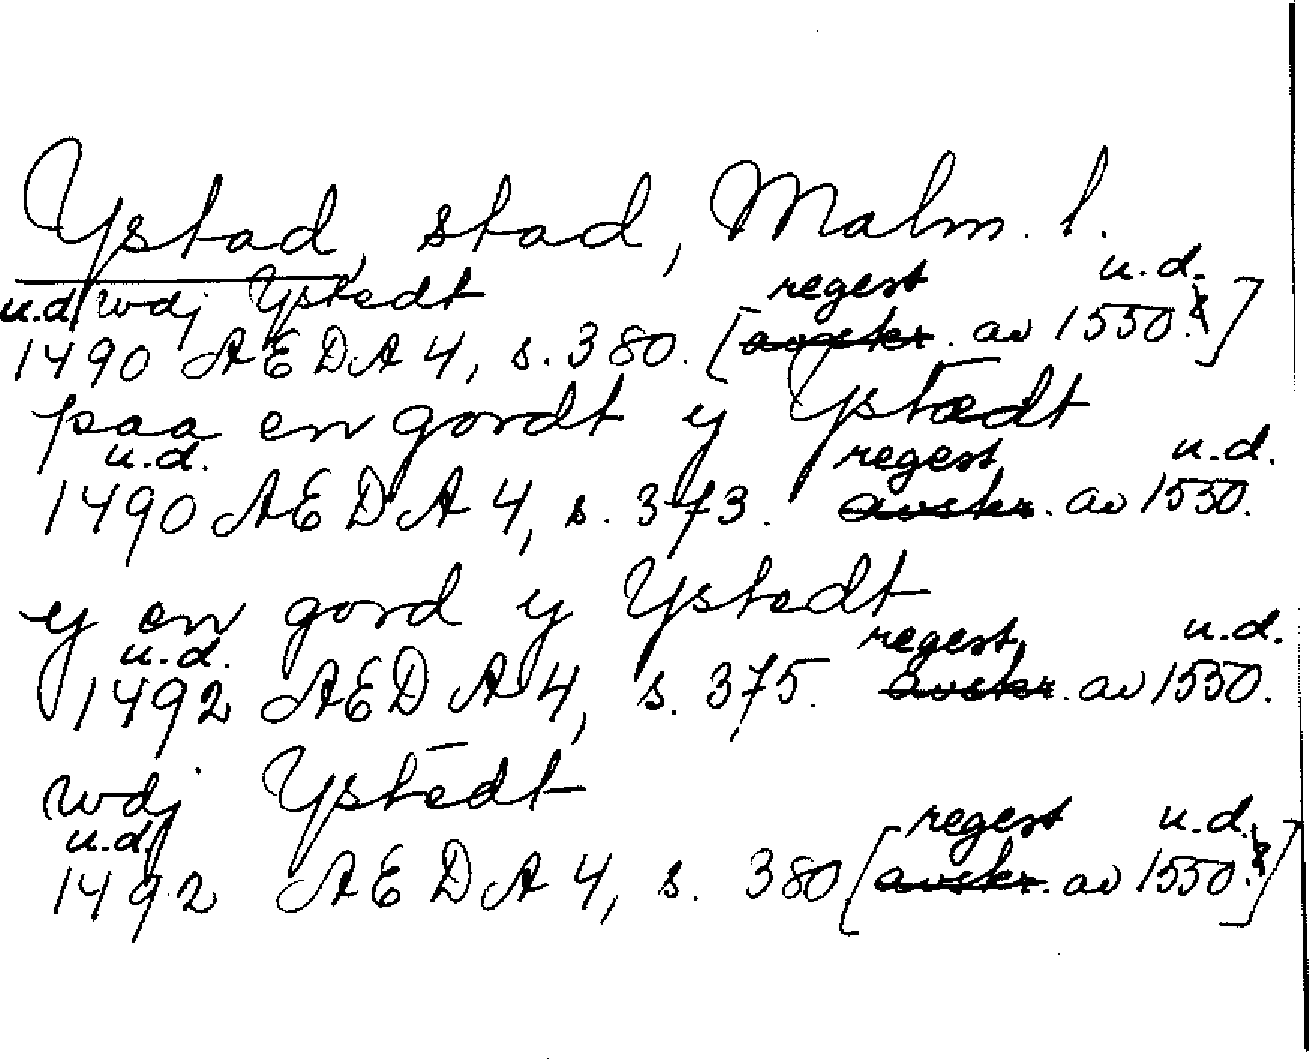 Ystad, stad, Malm. l.
u.d. wdj Ystedt regest u.d.
1490 AEDA 4, s. 380. [avskr. av 1550.]
paa en gordt y Ystædt
u.d. regest u.d.
1490 AEDA 4, s. 373. avskr. av 1550.
y en gord y Ystedt
u.d. regest u.d.
1492 AEDA 4, s. 375. avskr. av 1550.
wdj Ystedt
u.d. regest u.d.
1492 AEDA 4, s. 380 [avskr. av 1550.]